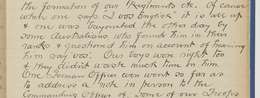 the formation of our Regiments etc. Of course
while one says "Too Bugler" it is all up
one was bayoneted the other day by
some Australians who found him in their
ranks & questioned him on account of hearing
him say was. Our boys were right too
they didnt waste much time in him
One German Officer even went so far as
to address a note in person to the
Commanding Officer of some of our Troops